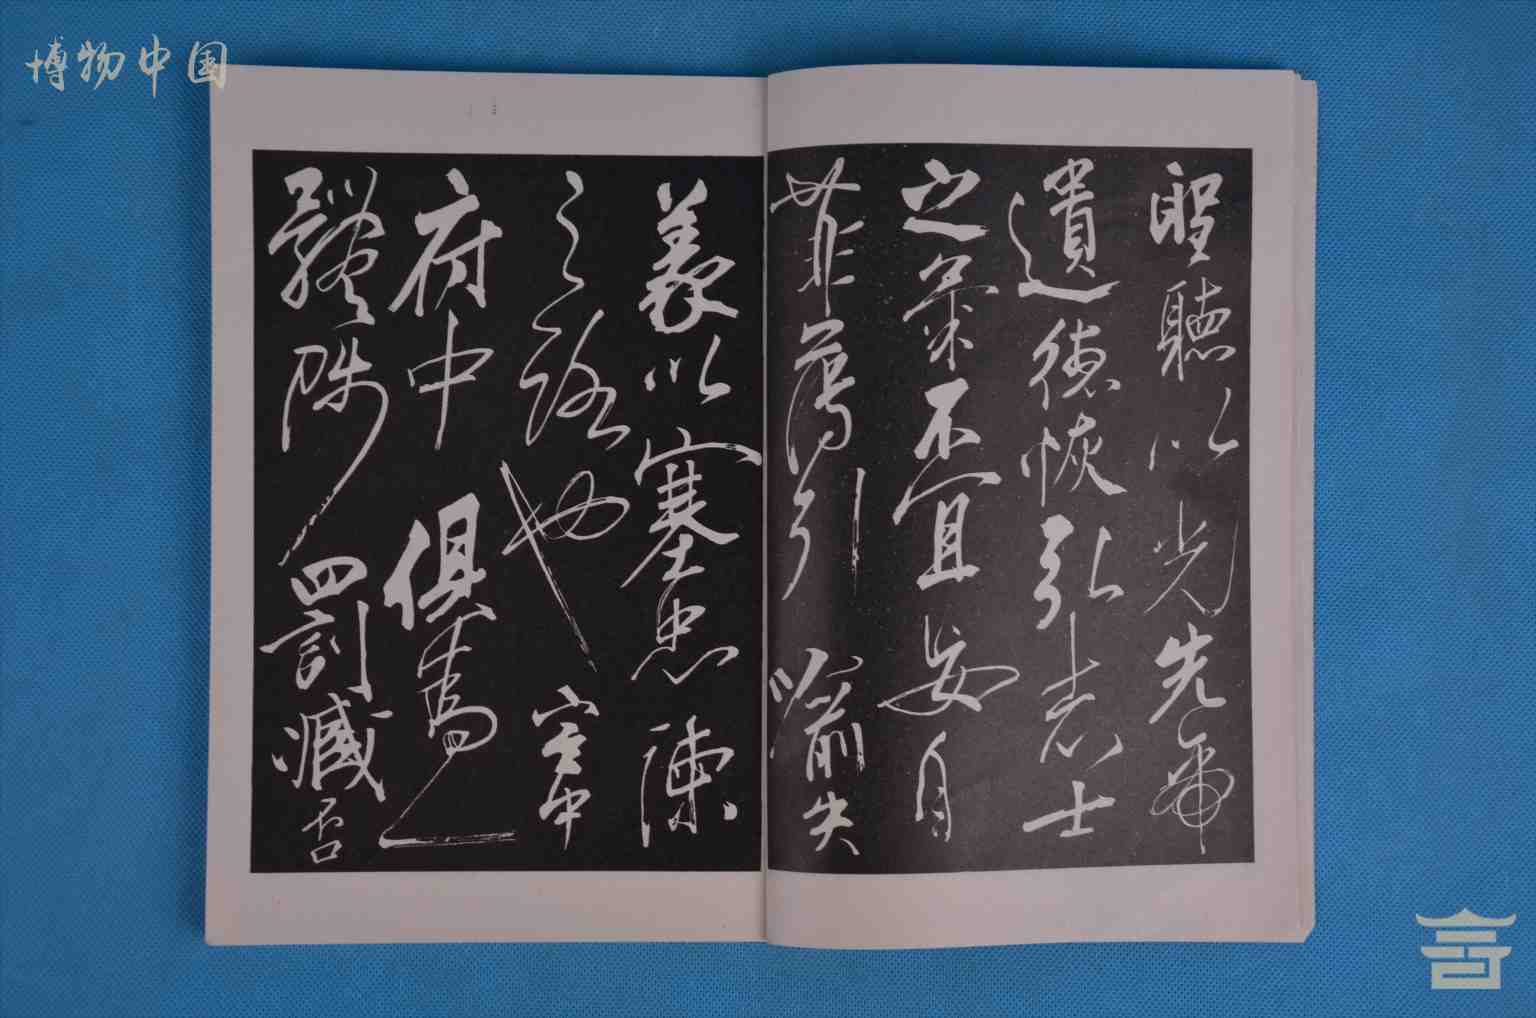 博物中国
聖聽以光先帝
遺德恢弘志士
之氣不宜妄自
菲薄引喻失
義以塞忠諫
之路也宮中
府中俱為一
體陟罰臧否